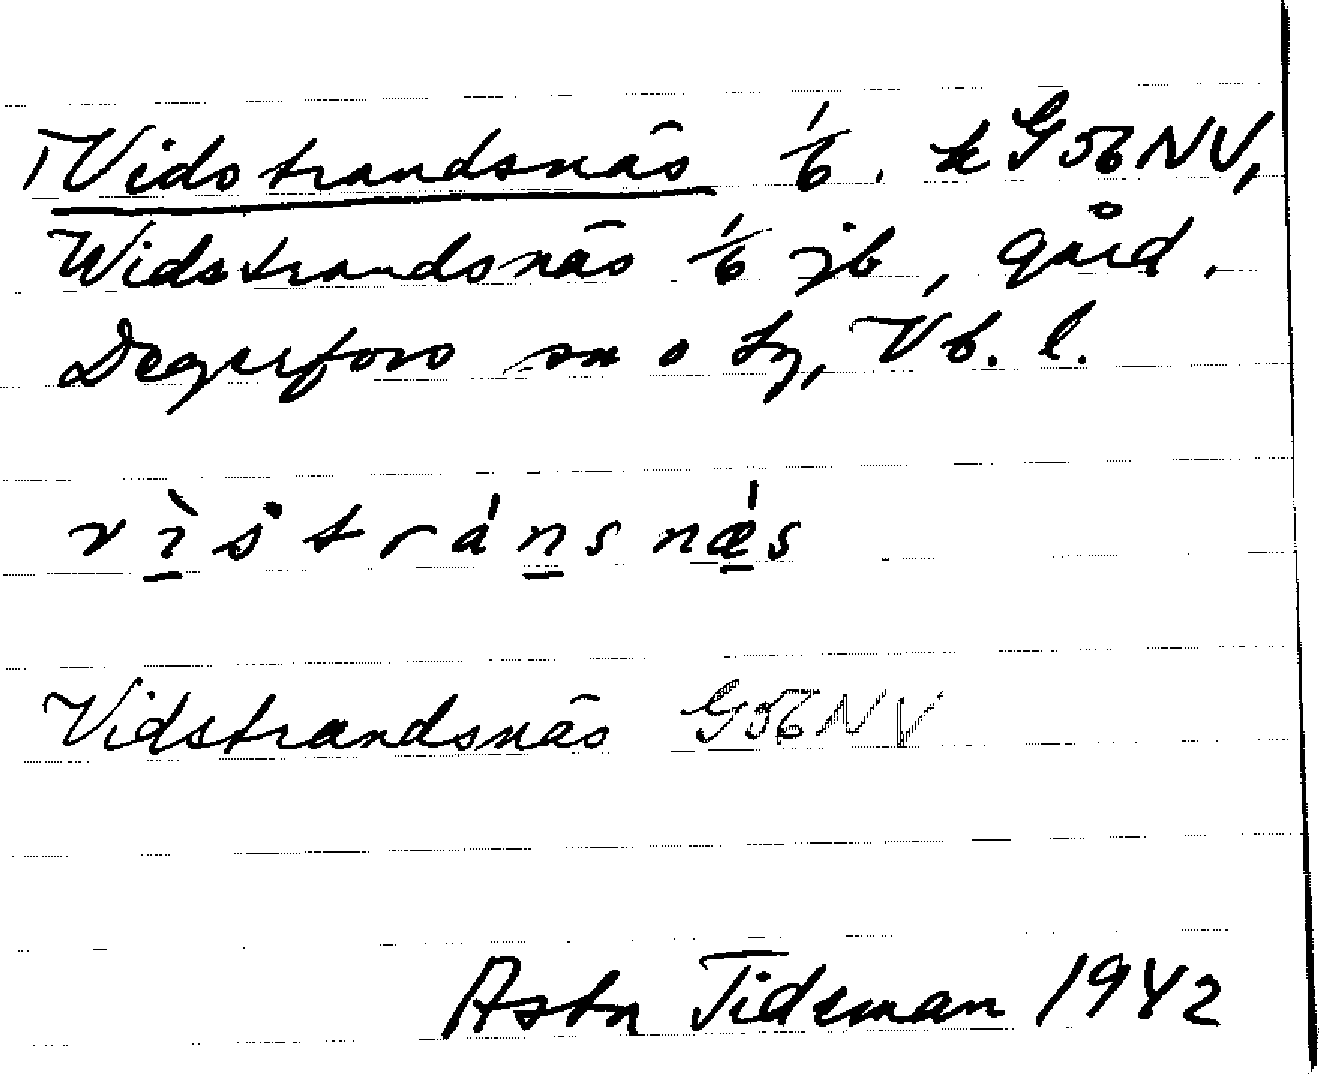 Vidstrandsnäs 1/6. k G56NV,
Widstrandsnäs 1/6 jb, gård.
Degerfors sn o tg, Vb. l.
vìstránsnǽs
Vidstrandsnäs G56NV
Astn Tideman 1942